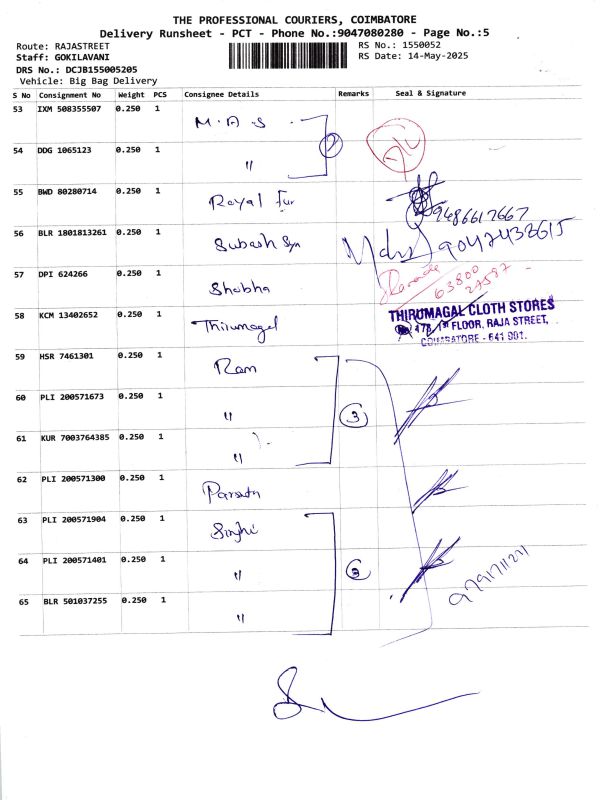 THE PROFESSIONAL COURIERS, COIMBATORE
Delivery Runsheet - PCT - Phone No.:9047080280 - Page No.:5
Route: RAJASTREET
RS No.: 1550052
Staff: GOKILAVANI
RS Date: 14-May-2025
DRS No.: DCJB155005205
Vehicle: Big Bag Delivery
S No Consignment No Weight PCS Consignee Details Remarks Seal & Signature
53 IXM 508355507 0.250 1 M.A S
54 DDG 1065123 0.250 1 " 2
55 BWD 80280714 0.250 1 Royal Fur
9486617667
56 BLR 1801813261 0.250 1 Subash Syn
9047438615
57 DPI 624266 0.250 1 Shobha
63800
27597
58 KCM 13402652 0.250 1 Thirumagal
THIRUMAGAL CLOTH STORES
478, 1st FLOOR, RAJA STREET,
COIMBATORE - 641 001.
59 HSR 7461301 0.250 1 Ram
60 PLI 200571673 0.250 1 " 3
61 KUR 7003764385 0.250 1 "
62 PLI 200571300 0.250 1
63 PLI 200571904 0.250 1 Singhi
64 PLI 200571401 0.250 1 " 3
65 BLR 501037255 0.250 1 "